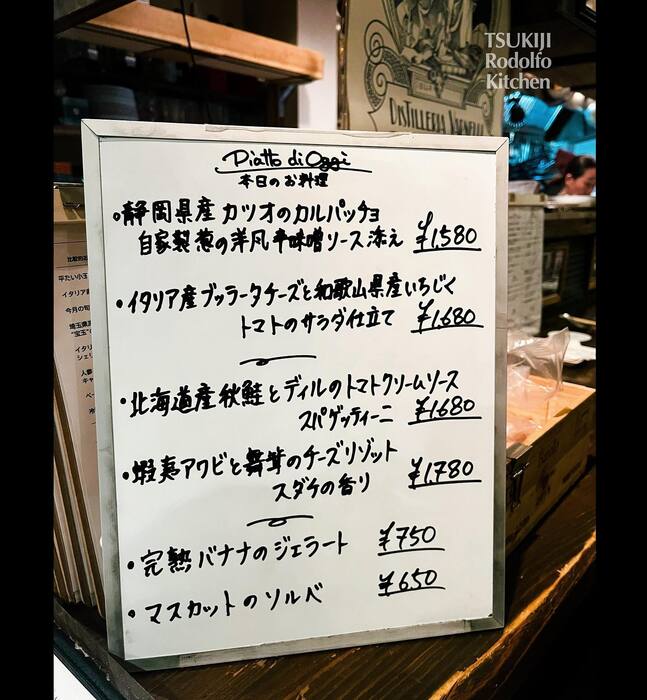 TSUKIJI
Rodolfo
Kitchen
DISTILLERIA
Piatto di Oggi
本日のお料理
・静岡県産 カツオのカルパッチョ
自家製葱の洋風辛味噌ソース添え ¥1,580
・イタリア産ブッラータチーズと和歌山県産いちじく
トマトのサラダ仕立て ¥1,680
・北海道産秋鮭とディルのトマトクリームソース
スパゲッティーニ ¥1,680
・蝦夷アワビと舞茸のチーズリゾット
スダチの香り ¥1,780
・完熟バナナのジェラート ¥750
・マスカットのソルベ ¥650
平たい小玉
イタリア
今月の旬
埼玉県
イタリ
シェリ
人参
キャ